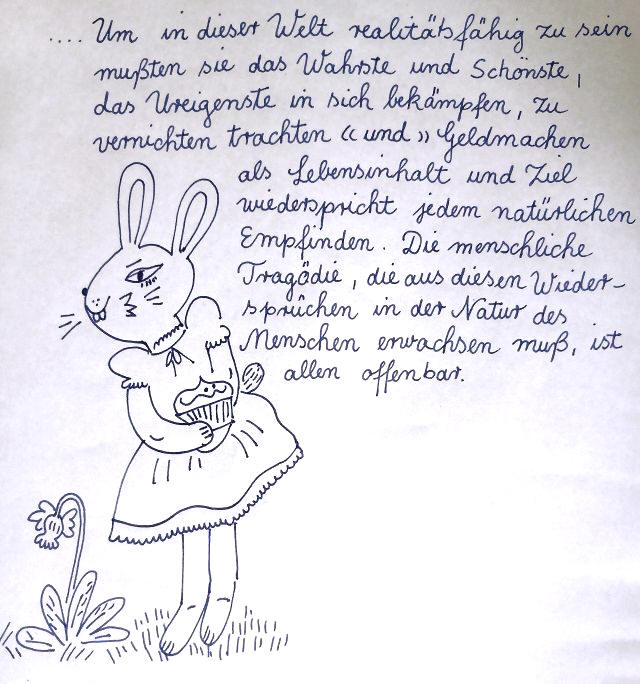 .... Um in dieser Welt realitätsfähig zu sein
mußten sie das Wahrste und Schönste,
das Ureigenste in sich bekämpfen, zu
vernichten trachten « und » Geldmachen
als Lebensinhalt und Ziel
wiederspricht jedem natürlichen
Empfinden. Die menschliche
Tragödie, die aus diesen Wieder-
sprüchen in der Natur des
Menschen erwachsen muß, ist
allen offenbar.